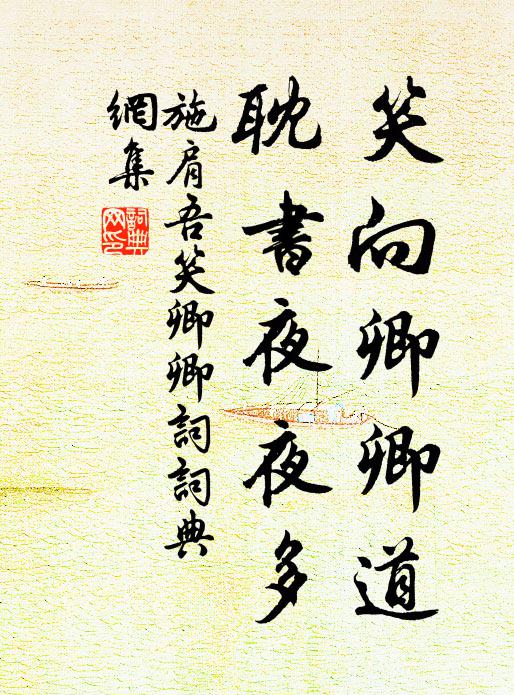 笑向卿卿道
耽書夜夜多
施肩吾笑卿卿詞詞典
網集
詞典網印